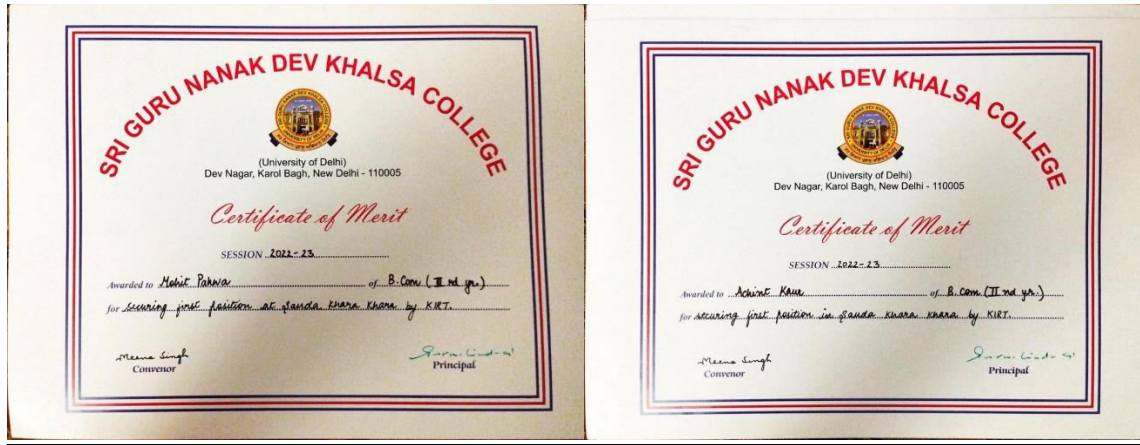 SRI GURU NANAK DEV KHALSA COLLEGE
(University of Delhi)
Dev Nagar, Karol Bagh, New Delhi - 110005
Certificate of Merit
SESSION 2022-23
Awarded to Mohit Pahwa of B.Com (II nd yr.)
for securing first position at Sauda Khara Khara by KIRT.
Meena Singh
Convenor
Principal
SRI GURU NANAK DEV KHALSA COLLEGE
(University of Delhi)
Dev Nagar, Karol Bagh, New Delhi - 110005
Certificate of Merit
SESSION 2022-23
Awarded to Achint Kaur of B.Com (II nd yr.)
for securing first position in Sauda Khara Khara by KIRT.
Meena Singh
Convenor
Principal